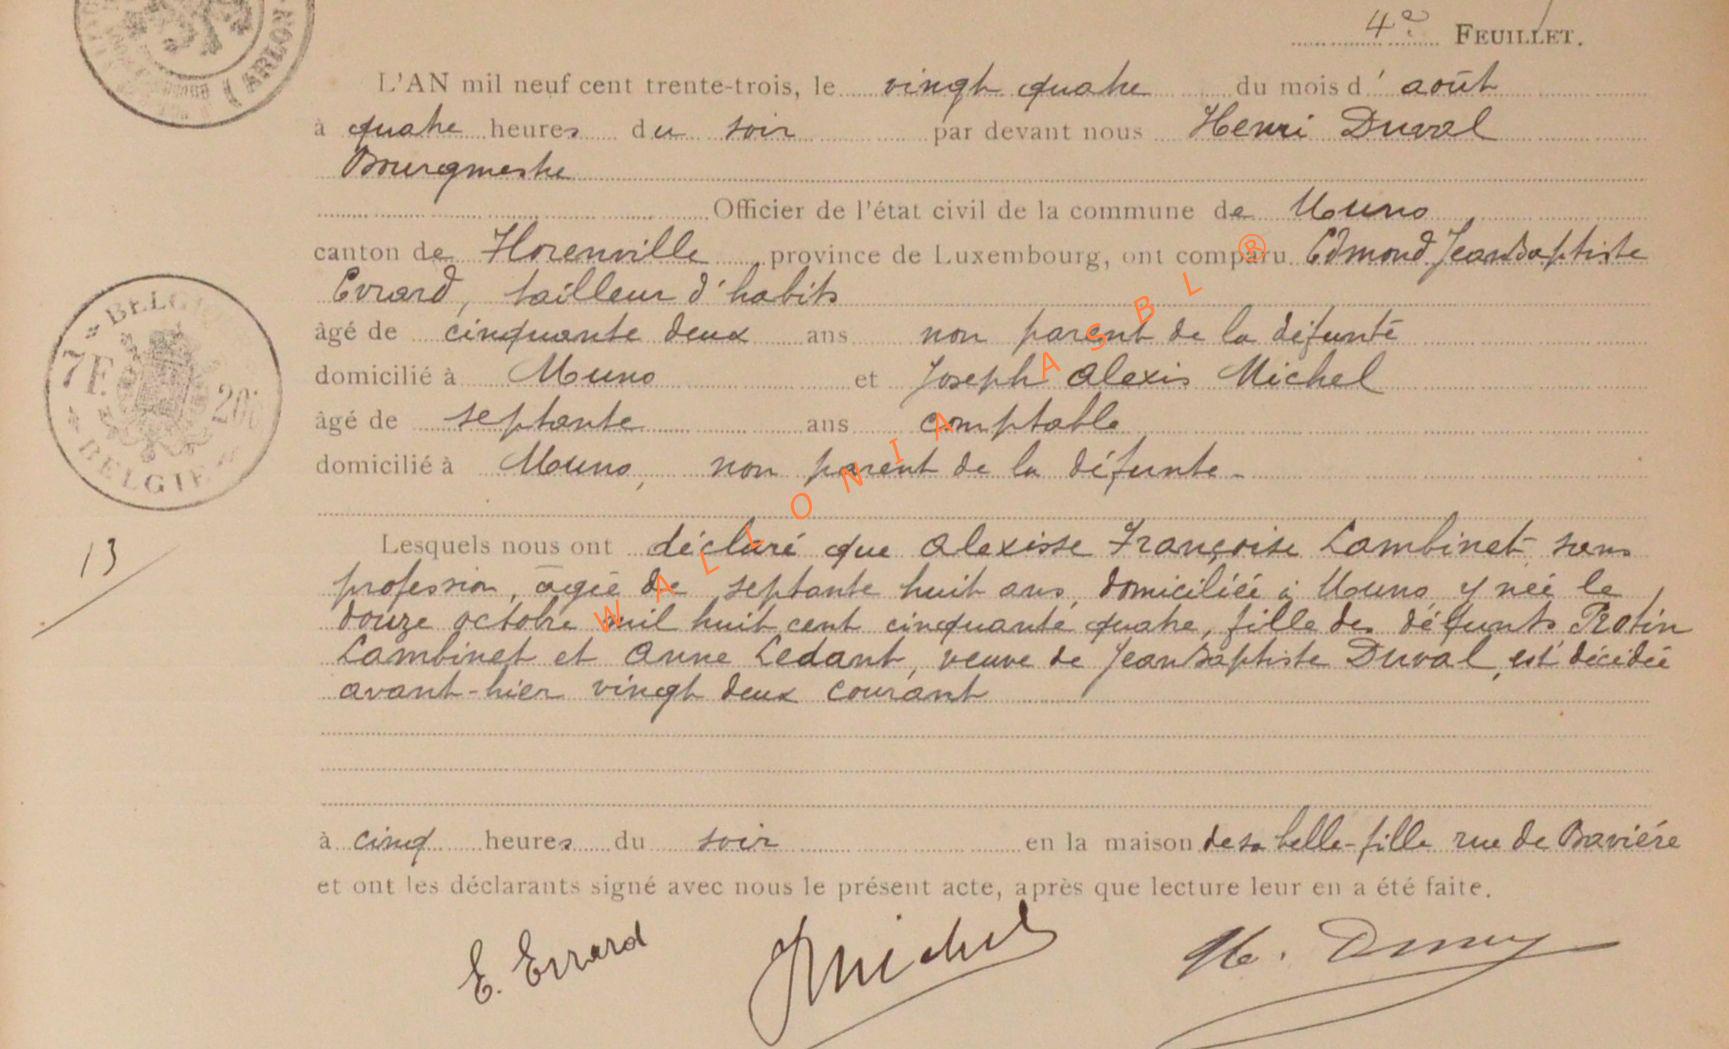 4e FEUILLET.
L'AN mil neuf cent trente-trois, le vingt quatre du mois d' août
à quatre heures du soir par devant nous Henri Duval
Bourgmestre
Officier de l'état civil de la commune de Muno
canton de Florenville province de Luxembourg, ont comparu Edmond Jean Baptiste
Evrard, tailleur d'habits
âgé de cinquante deux ans non parent de la défunte
domicilié à Muno et Joseph Alexis Michel
âgé de septante ans comptable
domicilié à Muno, non parent de la défunte
Lesquels nous ont déclaré que Alexisse Françoise Lambinet sans
profession, âgée de septante huit ans, domiciliée à Muno y née le
douze octobre mil huit cent cinquante quatre, fille des défunts Protin
Lambinet et Anne Ledant, veuve de Jean Baptiste Duval, est décédée
avant-hier vingt deux courant
à cinq heures du soir en la maison de sa belle-fille rue de Bavière
et ont les déclarants signé avec nous le présent acte, après que lecture leur en a été faite.
E. Evrard JMichel H. Duval
ARLON
BELGIQUE
7F. 20
BELGIE
13
WALLONIA ASBL ®